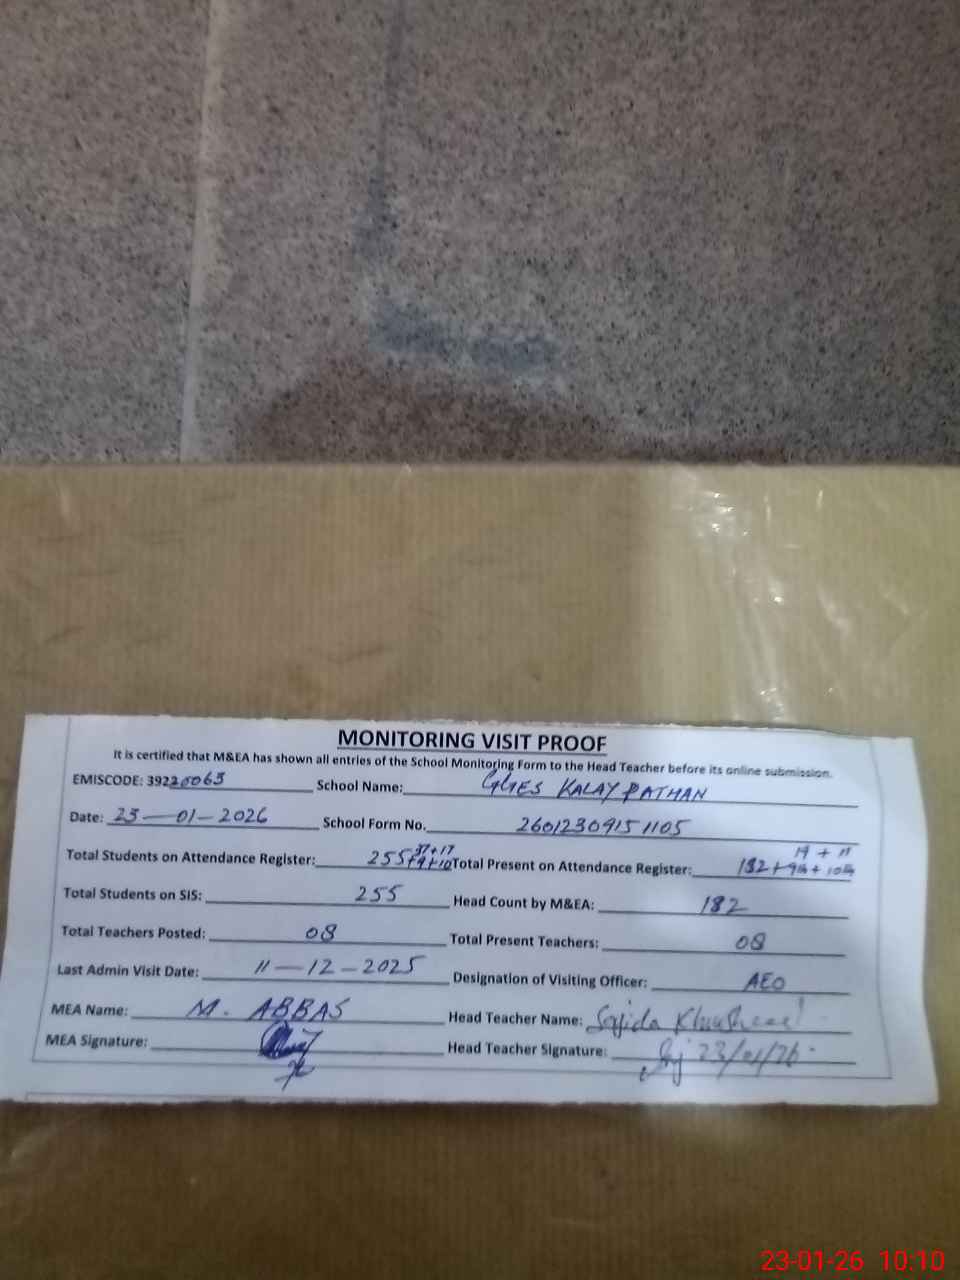 MONITORING VISIT PROOF
It is certified that M&EA has shown all entries of the School Monitoring Form to the Head Teacher before its online submission.
EMISCODE: 39220063 School Name: GGES KALAY PATHAN
Date: 23-01-2026 School Form No. 26012309151105
37+17 19 + 11
Total Students on Attendance Register: 255+9+10 Total Present on Attendance Register: 182+9th+10th
Total Students on SIS: 255 Head Count by M&EA: 182
Total Teachers Posted: 08 Total Present Teachers: 08
Last Admin Visit Date: 11-12-2025 Designation of Visiting Officer: AEO
MEA Name: M. ABBAS Head Teacher Name: Sajida Khursheed
MEA Signature: Head Teacher Signature: 23/01/26
23-01-26 10:10